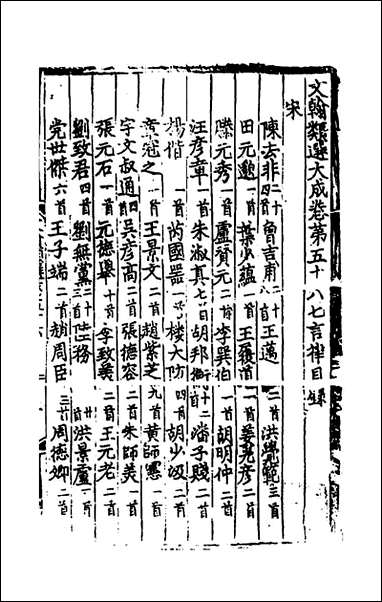 文翰類選大成卷第五十八七言律目錄
宋
陳去非二十首曾吉甫八首王邁二首洪
田元邈一首葉少蘊一首王
滕元秀一首盧贊元二首李巽伯一首胡明仲二首
汪彥章一首朱淑真七首胡邦衡十二首潘子賤二首
楊偕一首芮國器一首樓大防四首胡少汲二首
之一首王景文二首趙紫芝九首黃師憲一首
宇文叔通四首吳彥高二首張德容二首朱師美一首
張元石一首元德舉十首李致美二首王元老二首
劉致君四首劉無黨二十首務廿首洪景盧一首
党世傑六首王子端二首趙周臣三首周德卿二首